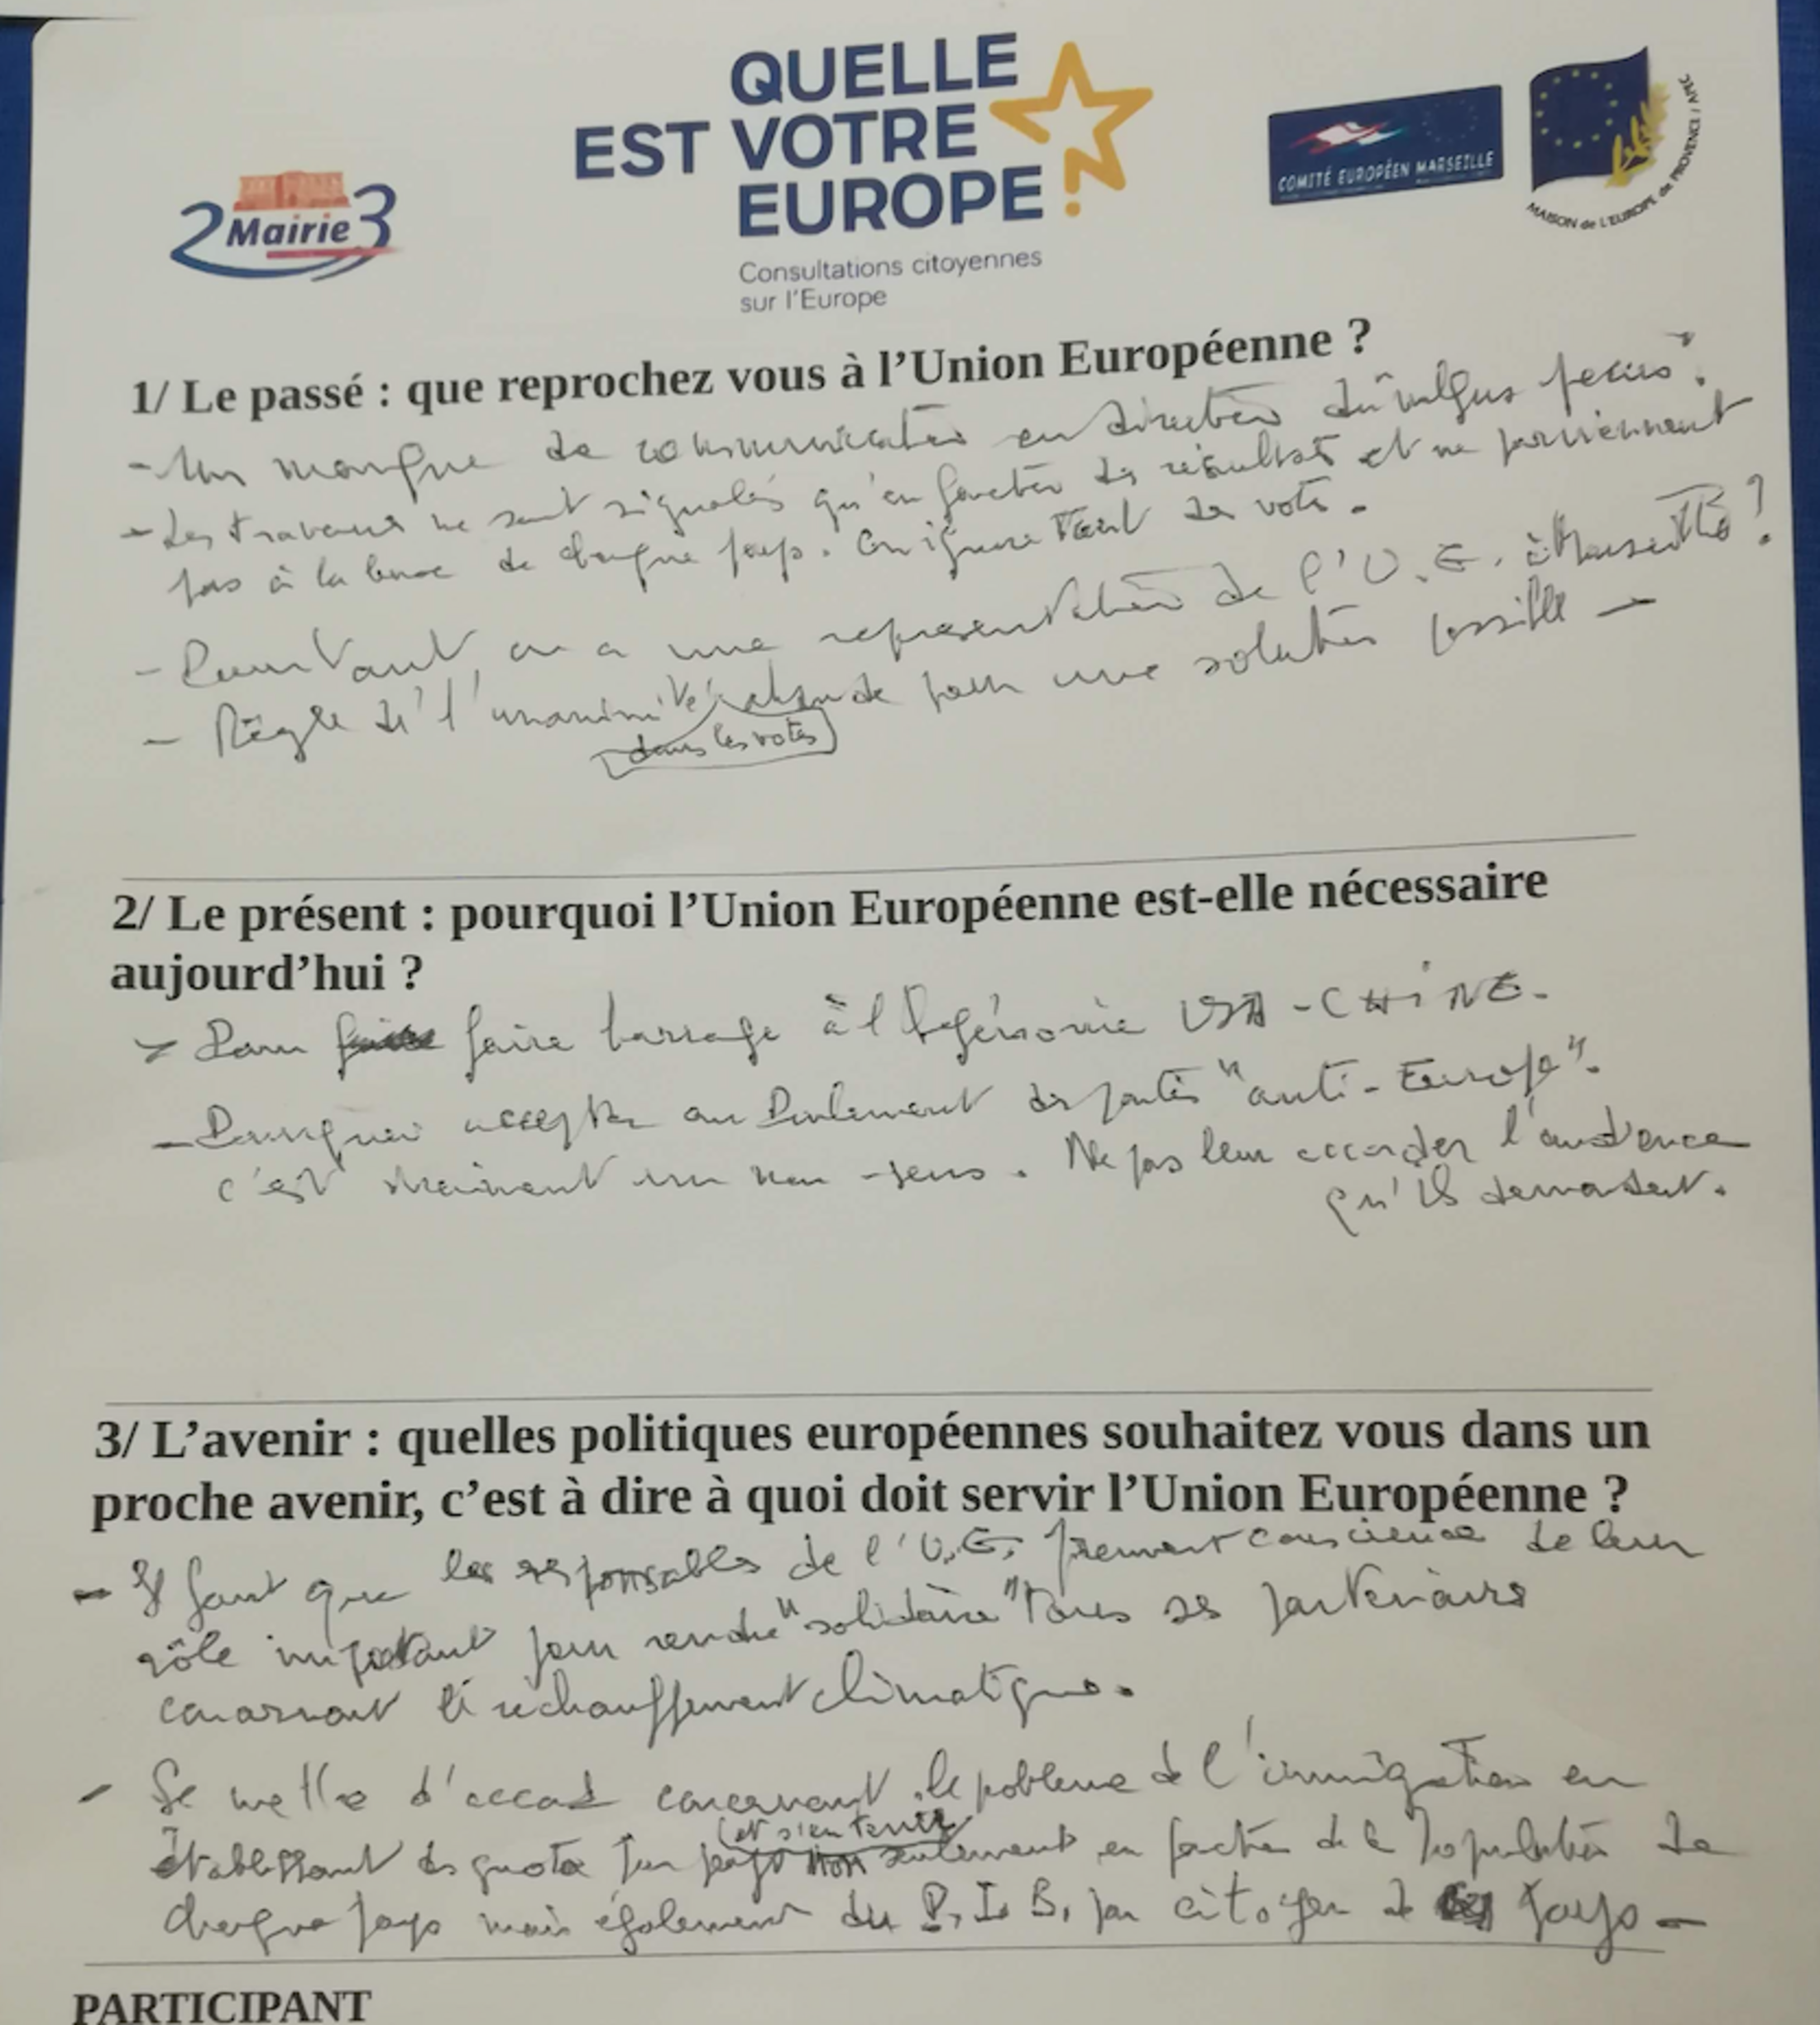 QUELLE
EST VOTRE
EUROPE ?
Consultations citoyennes
sur l'Europe
2 Mairie 3
COMITÉ EUROPÉEN MARSEILLE
MAISON de L'EUROPE de PROVENCE / APEC
1/ Le passé : que reprochez vous à l'Union Européenne ?
- Un manque de communication en direction du "vulgus pecus".
- Les travaux ne sont signalés qu'en fonction des résultats et ne parviennent
pas à la base de chaque pays. On ignore tout des votes.
- Pourtant, on a une représentation de l'U.E. à Marseille ?
- Règle de l'unanimité absurde pour une solution possible -
dans les votes
2/ Le présent : pourquoi l'Union Européenne est-elle nécessaire
aujourd'hui ?
- Pour faire barrage à l'hégémonie USA - CHINE.
- Pourquoi accepter au Parlement des partis "anti-Europe".
c'est vraiment un non-sens. Ne pas leur accorder l'audience
qu'ils demandent.
3/ L'avenir : quelles politiques européennes souhaitez vous dans un
proche avenir, c'est à dire à quoi doit servir l'Union Européenne ?
- Il faut que les responsables de l'U.E. prennent conscience de leur
rôle important pour rendre "solidaire" tous ses partenaires
concernant le réchauffement climatique.
- Se mettre d'accord concernant le problème de l'immigration en
(et s'en tenir)
établissant des quota par pays non seulement en fonction de la population de
chaque pays mais également du P.I.B. par citoyen de pays -
PARTICIPANT